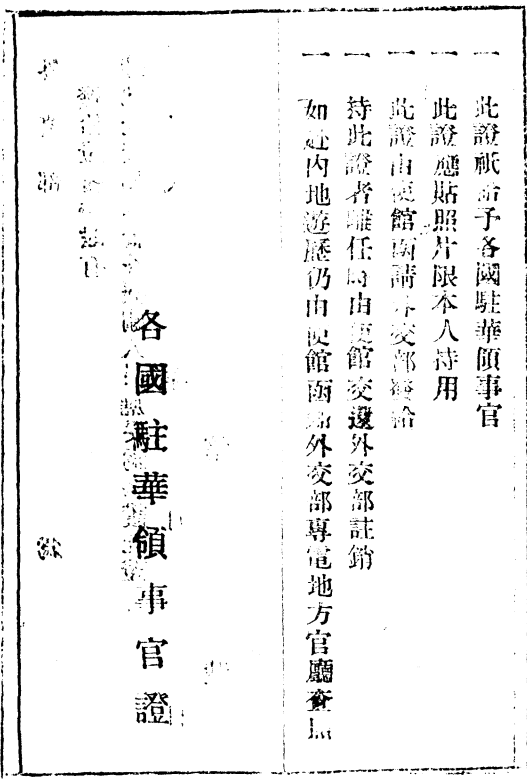 一 此證祇給予各國駐華領事官
一 此證應貼照片限本人持用
一 此證由使館函請外交部發給
一 持此證者離任時由使館交還外交部註銷
一 如赴內地遊歷仍由使館函請外交部專電地方官廳查照
各國駐華領事官證